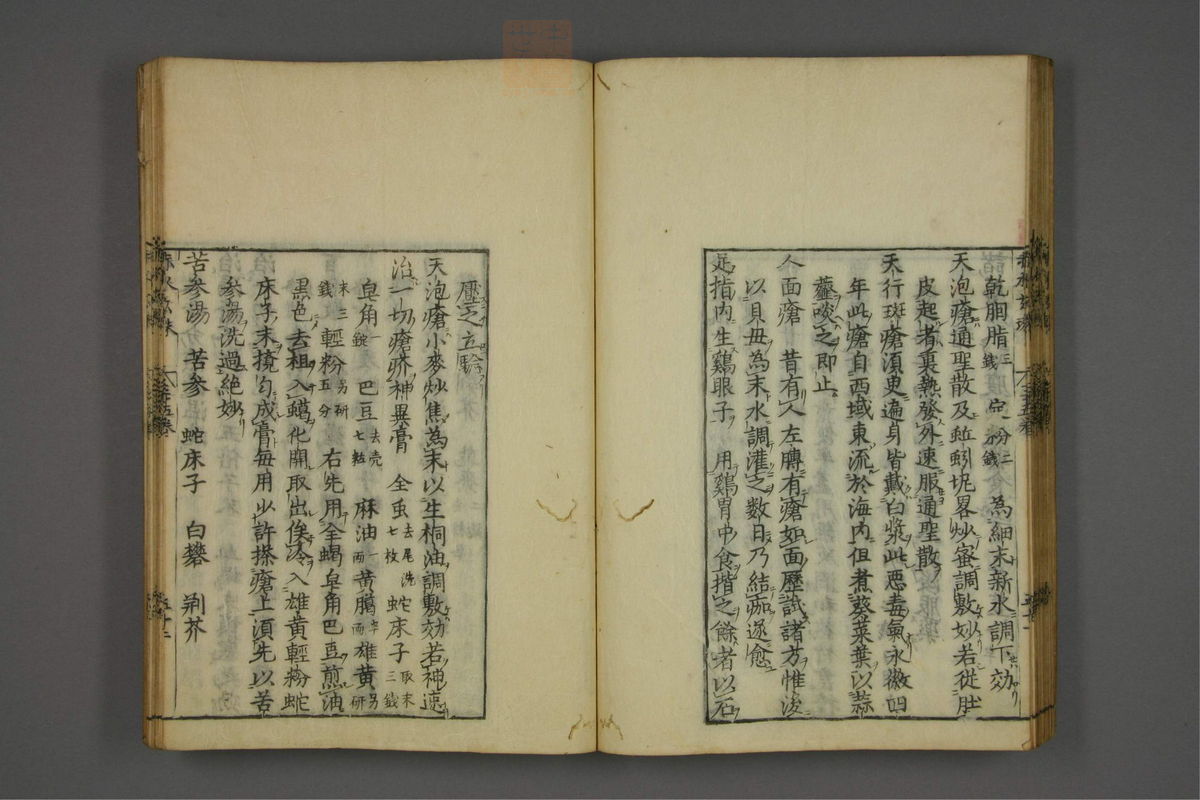 乾胭脂三錢 定粉二錢 為細末新水調下効
天泡瘡通聖散及蚯蚓坭畧炒蜜調敷妙若從肚
皮起者裏熱發外速服通聖散
天行斑瘡須臾遍身皆戴白漿此惡毒氣永徽四
年此瘡自西域東流於海内但煮葵菜葉以蒜
虀啖之即止
人面瘡 昔有人左膊有瘡如面歷試諸方惟
以貝毋為末水調灌之数日乃結痂遂愈
足指内生鷄眼子 用鷄胃中食揩之餘者以石
壓之立驗
天泡瘡小麥炒焦為末以生桐油調敷効若神速
治一切瘡疥神異膏 全虫去尾洗七枚 蛇床子取末三錢
皂角一錠 巴豆去壳七粒 麻油一両 黄臈半両 雄黄另研
末三錢 輕粉另研五分 右先用全蝎皂角巴豆煎油
黑色去粗入蠟化開取出俟冷入雄黄輕粉蛇
床子末攪勻成膏每用少許搽瘡上須先以苦
參湯洗過絶妙
苦參湯 苦參 蛇床子 白礬 荊芥